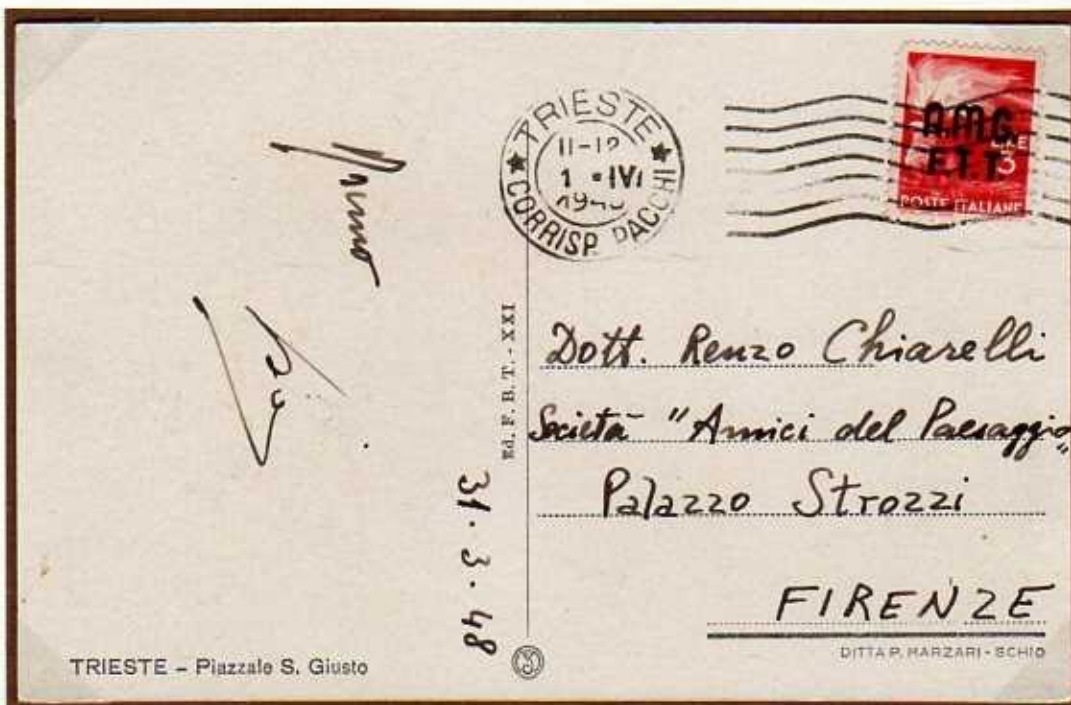 TRIESTE
11-12
1 • IV
CORRISP. PACCHI
A.M.G.
F.T.T.
LIRE
3
POSTE ITALIANE
Dott. Renzo Chiarelli
Società "Amici del Paesaggio"
Palazzo Strozzi
FIRENZE
Ed. F. B. T. - XXI
31.3.48
TRIESTE - Piazzale S. Giusto
DITTA P. MARZARI - SCHIO